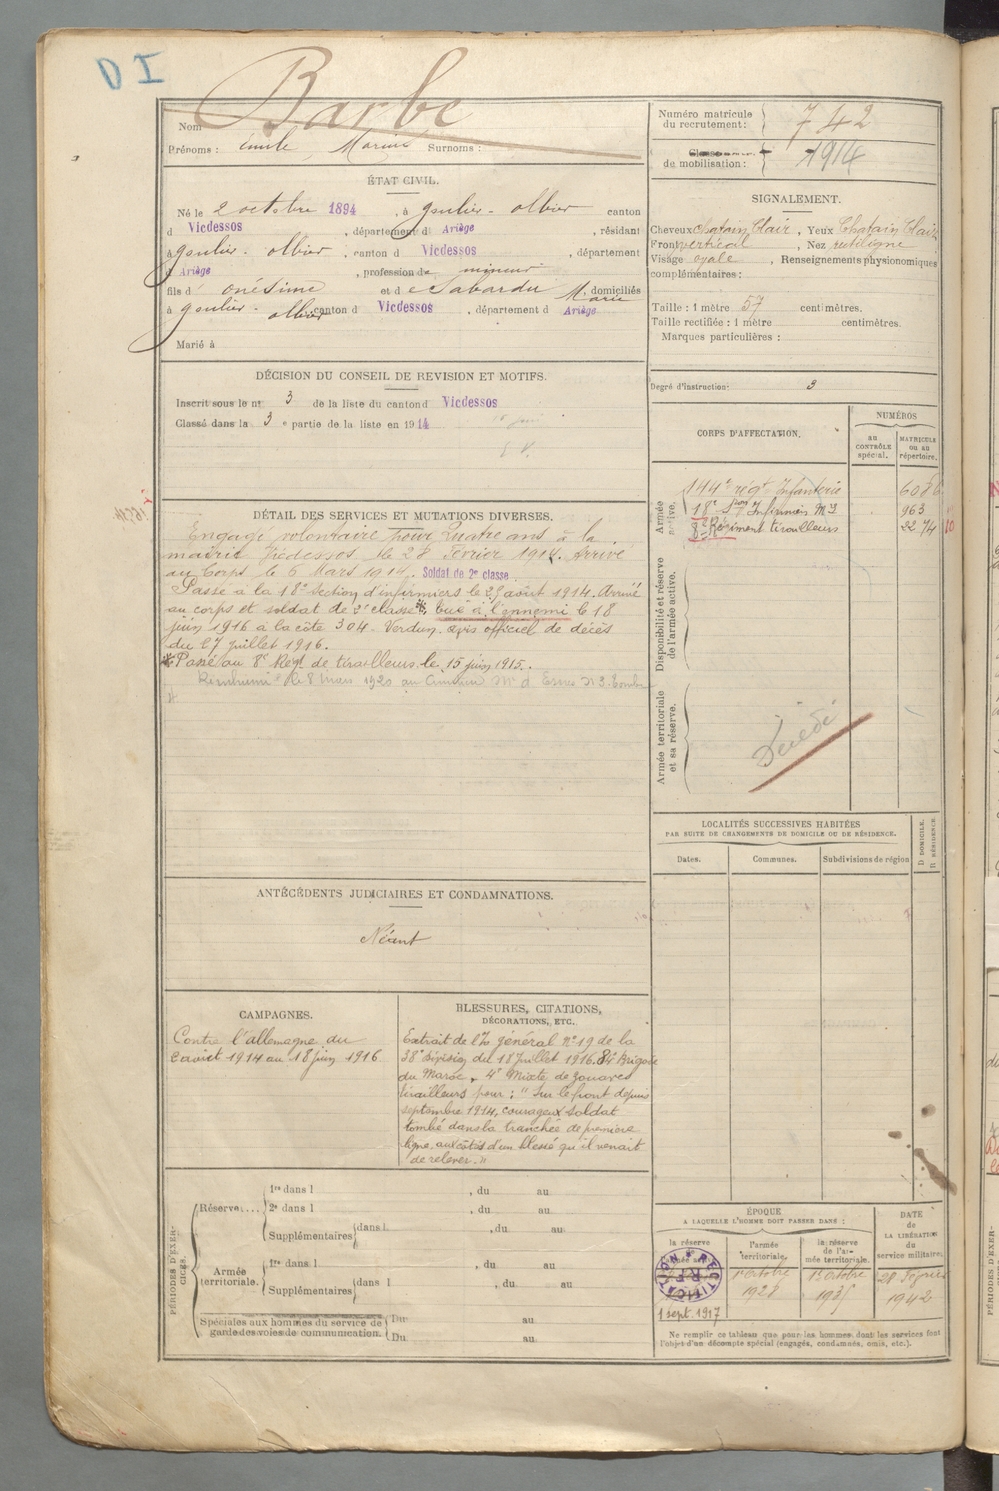 D I
Nom Barbe
Prénoms : Emile Marius Surnoms :
Numéro matricule du recrutement : 742
Classe de mobilisation : 1914
ÉTAT CIVIL.
Né le 2 octobre 1894, à Goulier-Olbier canton
d Vicdessos, département d Ariège, résidant
à Goulier-Olbier, canton d Vicdessos, département
d Ariège, profession de mineur
fils d' Onésime et de Sabardu Marie domiciliés
à Goulier-Olbier canton d Vicdessos, département d Ariège
Marié à
SIGNALEMENT.
Cheveux Chatain Clair, Yeux Chatain Clair
Front vertical, Nez rectiligne
Visage ovale, Renseignements physionomiques
complémentaires :
Taille : 1 mètre 57 centimètres.
Taille rectifiée : 1 mètre centimètres.
Marques particulières :
Degré d'instruction : 3
DÉCISION DU CONSEIL DE REVISION ET MOTIFS.
Inscrit sous le n° 3 de la liste du canton d Vicdessos
Classé dans la 3e partie de la liste en 1914
CORPS D'AFFECTATION.
NUMÉROS
au CONTRÔLE spécial.
MATRICULE ou au répertoire.
Armée active.
144e régt Infanterie 6086
18e Son Infirmiers Mres 963
8e Régiment tirailleurs 22 74
Disponibilité et réserve de l'armée active.
Armée territoriale et sa réserve.
Décédé
DÉTAIL DES SERVICES ET MUTATIONS DIVERSES.
Engagé volontaire pour quatre ans à la
mairie Vicdessos, le 28 Février 1914. Arrivé
au Corps le 6 Mars 1914. Soldat de 2e classe
Passé à la 18e section d'infirmiers le 29 août 1914. Arrivé
au corps et soldat de 2e classe *, tué à l'ennemi le 18
juin 1916 à la côte 304. Verdun. avis officiel de décès
du 27 juillet 1916.
* Passé au 8e Régt de tirailleurs le 15 juin 1915.
Réinhumé le 8 mars 1920 au Cimetière Mre d'Esnes
LOCALITÉS SUCCESSIVES HABITÉES
PAR SUITE DE CHANGEMENTS DE DOMICILE OU DE RÉSIDENCE.
Dates. Communes. Subdivisions de région
D DOMICILE. R RÉSIDENCE.
ANTÉCÉDENTS JUDICIAIRES ET CONDAMNATIONS.
Néant
CAMPAGNES.
Contre l'allemagne du
2 août 1914 au 18 juin 1916
BLESSURES, CITATIONS,
DÉCORATIONS, ETC.
Extrait de l'O général n° 19 de la
38e Division du 18 Juillet 1916. 84e Brigade
du Maroc, 4e Mixte de zouaves
tirailleurs pour : "Sur le front depuis
septembre 1914, courageux soldat
tombé dans la tranchée de première
ligne, aux côtés d'un blessé qu'il venait
de relever."
PÉRIODES D'EXERCICES.
Réserve....
1re dans l , du au
2e dans l , du au
Supplémentaires dans l , du au
Armée territoriale.
1re dans l , du au
Supplémentaires dans l , du au
Spéciales aux hommes du service de garde des voies de communication.
Du au
Du au
ÉPOQUE
A LAQUELLE L'HOMME DOIT PASSER DANS :
la réserve
l'armée territoriale.
la réserve de l'armée territoriale.
DATE de LA LIBÉRATION du service militaire.
RECTIFICATION R F
1 sept. 1917
1er octobre 1928
1er octobre 1935
28 Février 1942
Ne remplir ce tableau que pour les hommes dont les services font
l'objet d'un décompte spécial (engagés, condamnés, omis, etc.).